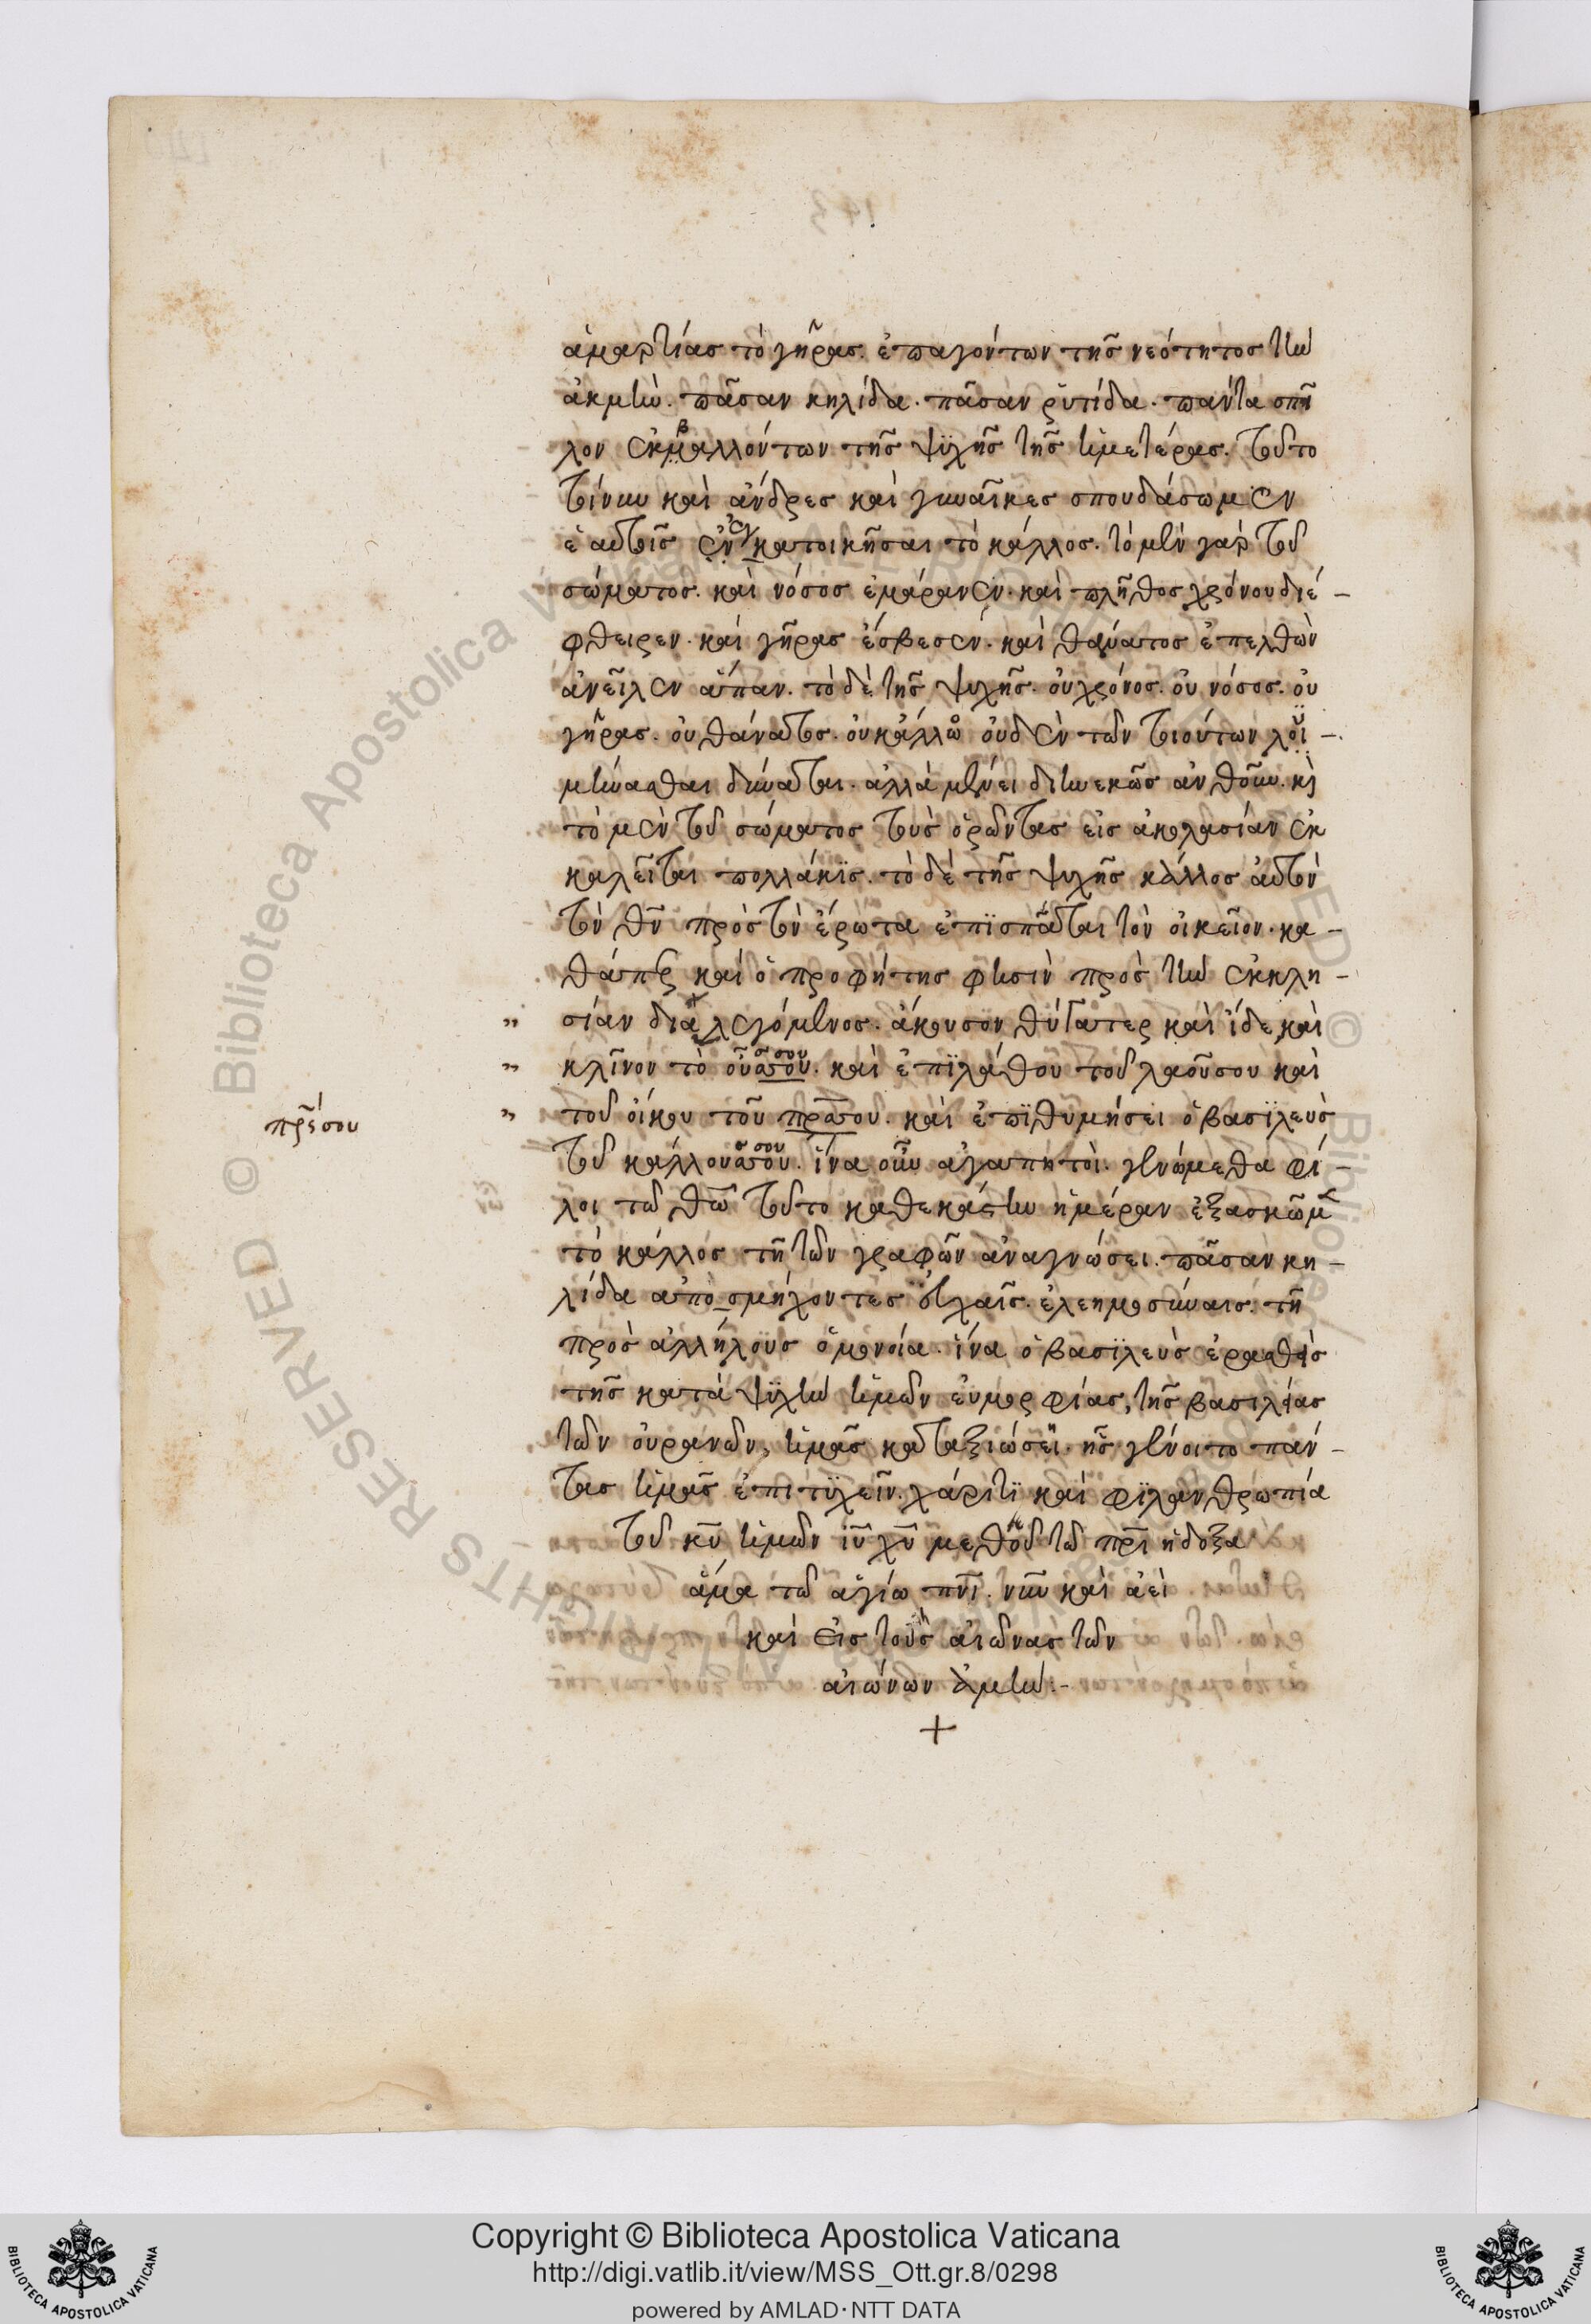 ἁμαρτίας τὸ γῆρας. ἐπαγόντων τῆς νεότητος τὴν
ἀκμὴν. πᾶσαν κηλίδα. πᾶσαν ῥυτίδα. πάντα σπῆ
λον ἐκβαλλόντων τῆς ψϋχῆς τῆς ἡμετέρας. τοῦτο
τοίνυν καὶ ἄνδρες καὶ γυναῖκες σπουδάσωμεν
ἑαυτοῖς ἐν κατοικῆσαι τὸ κάλλος. τὸ μὲν γὰρ τοῦ
σώματος. καὶ νόσος ἐμάρανεν. καὶ πλῆθος χρόνου διέ-
φθειρεν. καὶ γῆρας ἔσβεσεν. καὶ θάνατος ἐπελθὼν
ἀνεῖλεν ἅπαν. τὸ δὲ τῆς ψυχῆς. οὐ χρόνος. οὐ νόσος. οὐ
γῆρας. οὐ θάνατος. οὐκ ἄλλο οὐδὲν τῶν τοιούτων λοϊ-
μήνασθαι δύναται. ἀλλὰ μένει διηνεκῶς ἀνθοῦν. κὶ
τὸ μὲν τοῦ σώματος τοὺς ὁρῶντας εἰς ἀκολασίαν ἐκ
καλεῖται πολλάκϊς. τὸ δὲ τῆς ψυχῆς κάλλος αὐτὸν
τὸν θν πρὸς τὸν ἔρωτα ἐπϊσπᾶται τὸν οἰκεῖον. κα-
θάπερ καὶ ὁ προφήτης φησὶν πρὸς τὴν ἐκκλη-
" σίαν διαλεγόμενος. ἄκουσον θύγατερ καὶ ἴδε, καὶ
" κλῖνον τὸ οὖς σου. καὶ ἐπϊλάθου τοῦ λαοῦ σου καὶ
πρς σου " τοῦ οἴκου τοῦ πρς σου. καὶ ἐπϊθυμήσει ὁ βασϊλεὺς
τοῦ κάλλους σου. ἵνα οὖν ἀγαπητοὶ. γενώμεθα φί-
λοι τῶ θω τοῦτο καθεκάστην ἡμέραν ἐξασκῶμεν
τὸ κάλλος τῆ τῶν γραφῶν ἀναγνώσει. πᾶσαν κη-
λίδα ἀποσμήχοντες εὐχαῖς. ἐλεημοσύναις. τῆ
πρὸς ἀλλήλους ὁμονοία. ἵνα ὁ βασϊλεὺς ἐρασθεὶς
τῆς κατὰ ψϋχὴν ἡμῶν εὐμορφίας, τῆς βασιλείας
τῶν οὐρανῶν, ἡμᾶς καταξιώσει. ἧς γένοιτο πάν-
τας ἡμᾶς ἐπιτϋχεῖν. χάριτϊ καὶ φϊλανθρωπία
τοῦ κυ ἡμῶν ιυ χυ μεθοῦ τῶ πρι ἡ δοξα
ἅμα τῶ ἁγίω πνι. νῦν καὶ ἀεὶ
καὶ εἰς τοὺς αἰῶνας τῶν
αἰώνων ἀμήν.-
+
Copyright © Biblioteca Apostolica Vaticana
http://digi.vatlib.it/view/MSS_Ott.gr.8/0298
powered by AMLAD·NTT DATA